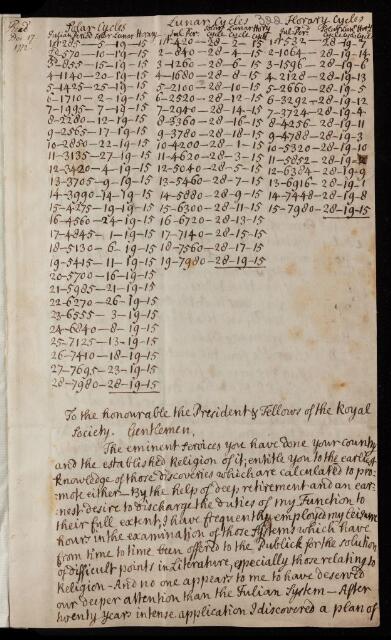 Read
Dec. 17
1772.
322
Solar Cycles
Lunar Cycles
Horary Cycles
1-285-5-19-15
2-570-10-19-15
3-855-15-19-15
4-1140-20-19-15
5-1425-25-19-15
6-1710-2-19-15
7-1995-7-19-15
8-2280-12-19-15
9-2565-17-19-15
10-2850-22-19-15
11-3135-27-19-15
12-3420-4-19-15
13-3705-9-19-15
14-3990-14-19-15
15-4275-19-19-15
16-4560-24-19-15
17-4845-1-19-15
18-5130-6-19-15
19-5415-11-19-15
20-5700-16-19-15
21-5985-21-19-15
22-6270-26-19-15
23-6555-3-19-15
24-6840-8-19-15
25-7125-13-19-15
26-7410-18-19-15
27-7695-23-19-15
28-7980-28-19-15
1-420-28-2-15
2-840-28-4-15
3-1260-28-6-15
4-1680-28-8-15
5-2100-28-10-15
6-2520-28-12-15
7-2940-28-14-15
8-3360-28-16-15
9-3780-28-18-15
10-4200-28-1-15
11-4620-28-3-15
12-5040-28-5-15
13-5460-28-7-15
14-5880-28-9-15
15-6300-28-11-15
16-6720-28-13-15
17-7140-28-15-15
18-7560-28-17-15
19-7980-28-19-15
1-532-28-19-7
2-1064-28-19-14
3-1596-28-19-6
4-2128-28-19-13
5-2660-28-19-5
6-3292-28-19-12
7-3724-28-19-4
8-4256-28-19-11
9-4788-28-19-3
10-5320-28-19-10
11-5852-28-19-
12-6384-28-19-9
13-6916-28-19-1
14-7448-28-19-8
15-7980-28-19-15
To the honourable the President & Fellows of the Royal
Society. Gentlemen,
The eminent services you have done your country
and the established Religion of it, entitle you to the earliest
knowledge of those discoveries which are calculated to pro-
mote either - By the help of deep retirement and an ear-
nest desire to discharge the duties of my Function to
their full extent, I have frequently employed my leisure
hours in the examination of those systems which have
from time to time been offered to the Publick for the solution
of difficult points in Literature, especially those relating to
Religion - And no one appears to me to have deserved
our deeper attention than the Julian System - After
twenty years intense application I discovered a plan of